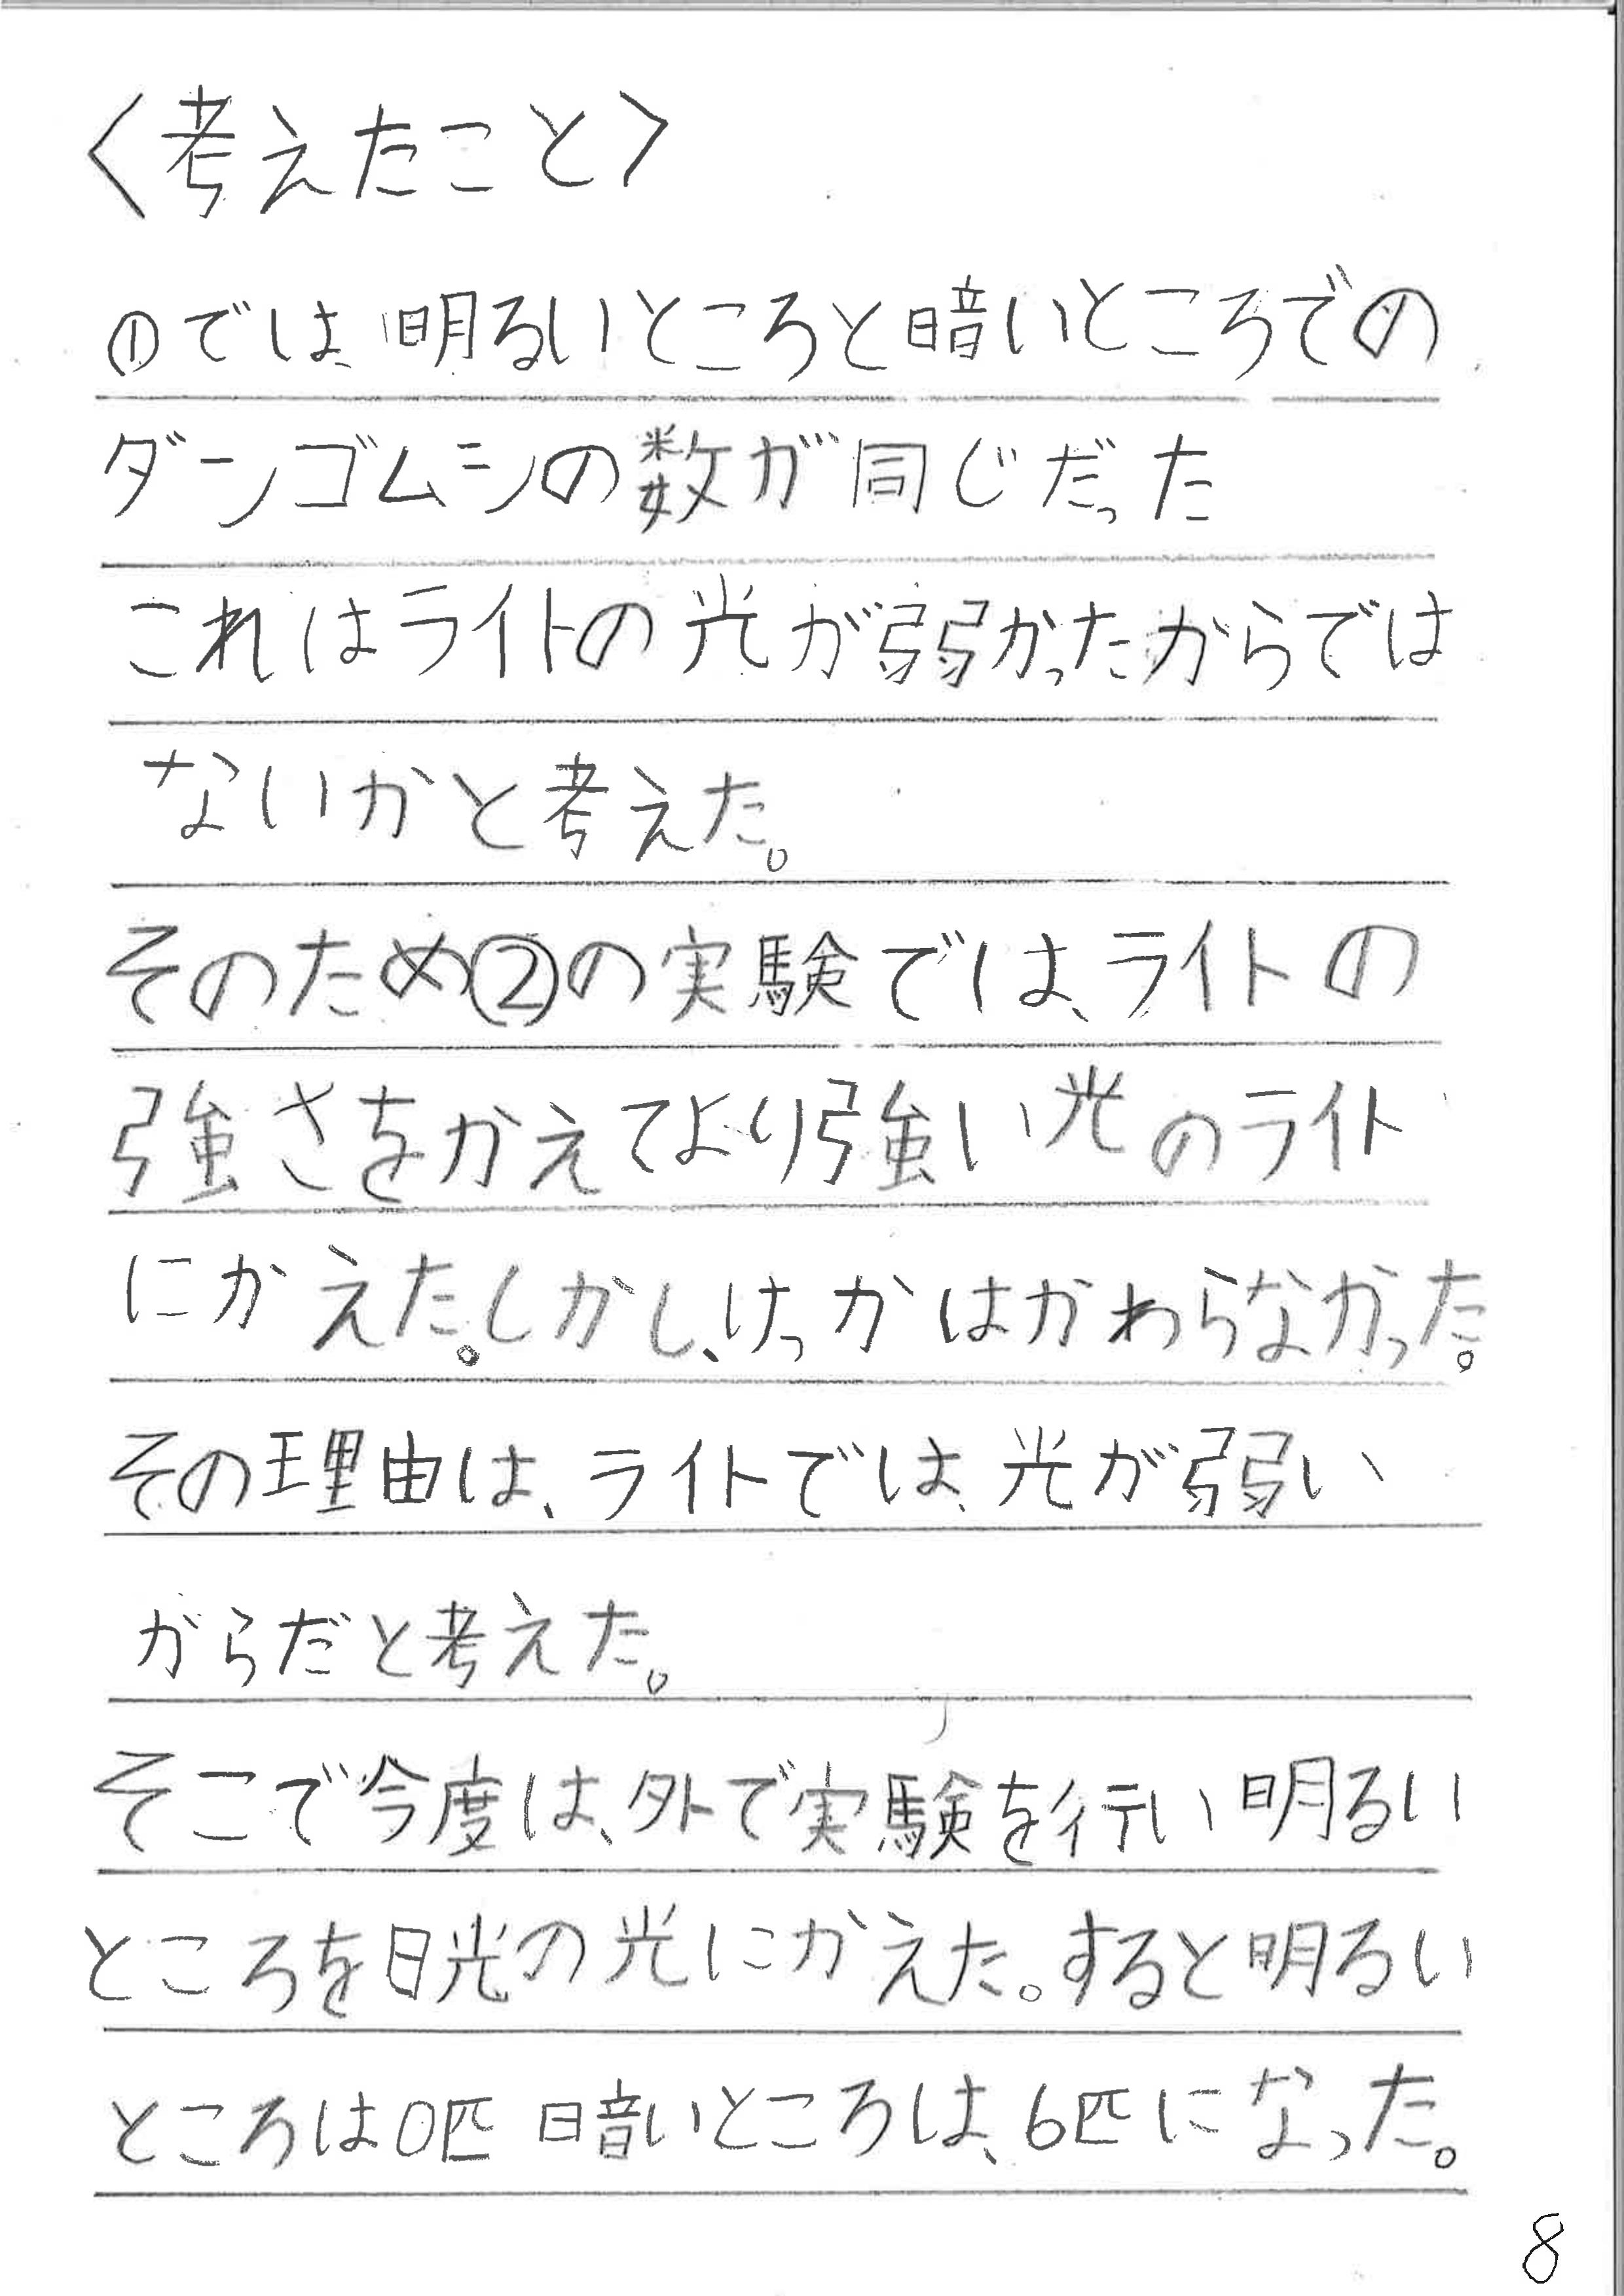 〈考えたこと〉
①では、明るいところと暗いところでの
ダンゴムシの数が同じだった
これはライトの光が弱かったからでは
ないかと考えた。
そのため②の実験では、ライトの
強さをかえてより強い光のライト
にかえた。しかし、けっかはかわらなかった。
その理由は、ライトでは、光が弱い
からだと考えた。
そこで今度は、外で実験を行い明るい
ところを日光の光にかえた。すると明るい
ところは0匹 暗いところは、6匹になった。
8